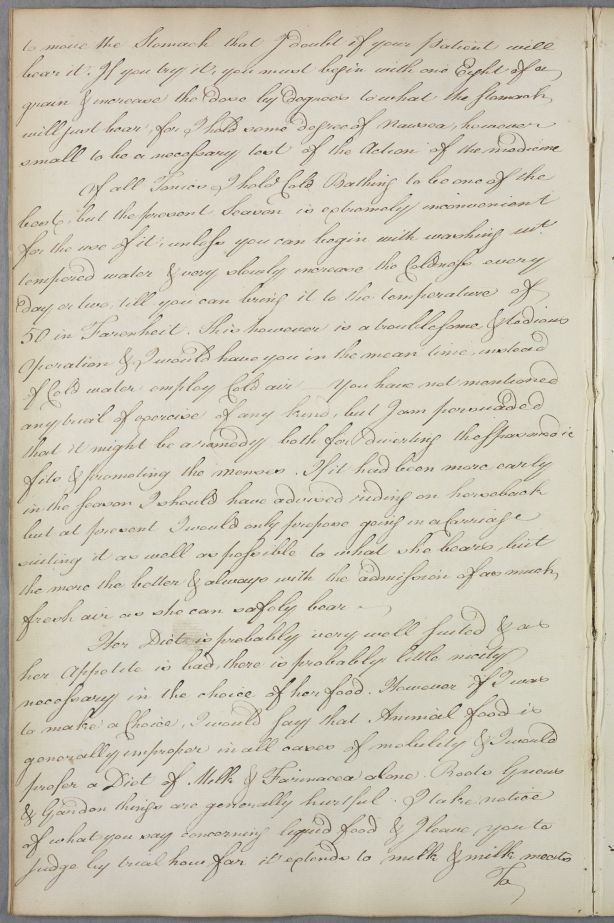 to move the Stomach that I doubt if your patient will
bear it. If you try it, you must begin with one Eight of a
grain & increase the Dose by degrees to what the Stomach
will just bear, for I hold some degree of Nausea, however
small to be a necessary test of the Action of the medicine
Of all Tonics I hold Cold Bathing to be one of the
best, but the present Season is extremely inconvenient
for the use of it, unless you can begin with washing wt.
tempered water & very slowly increase the Coldness every
day or two, till you can bring it to the temperature of
50 in Farenheit. This however is a troublesome & tedious
Operation & I would have you in the mean time, instead
of Cold water employ Cold air – You have not mentioned
any trial of exercise of any kind, but I am persuaded
that it might be a remedy both for diverting the Spasmodic
fits & promoting the menses. If it had been more early
in the Season I should have advised riding on horseback
but at present I would only propose going in a Carriage
suiting it as well as possible to what she bears, but
the more the better & always with the admission of as much
fresh air as she can safely bear –
Her Diet is probably very well suited & as
her Appetite is bad, there is probably little nicety
necessary in the choice of her food. However if I was
to make a Choice, I would say that Animal food is
generally improper in all cases of mobility & I would
prefer a Diet of Milk & Farinacea alone. Roots Greens
& Garden things are generally hurtful. I take notice
of what you say concerning liquid food & I leave you to
judge by trial how far it extends to milk & milk meats
To